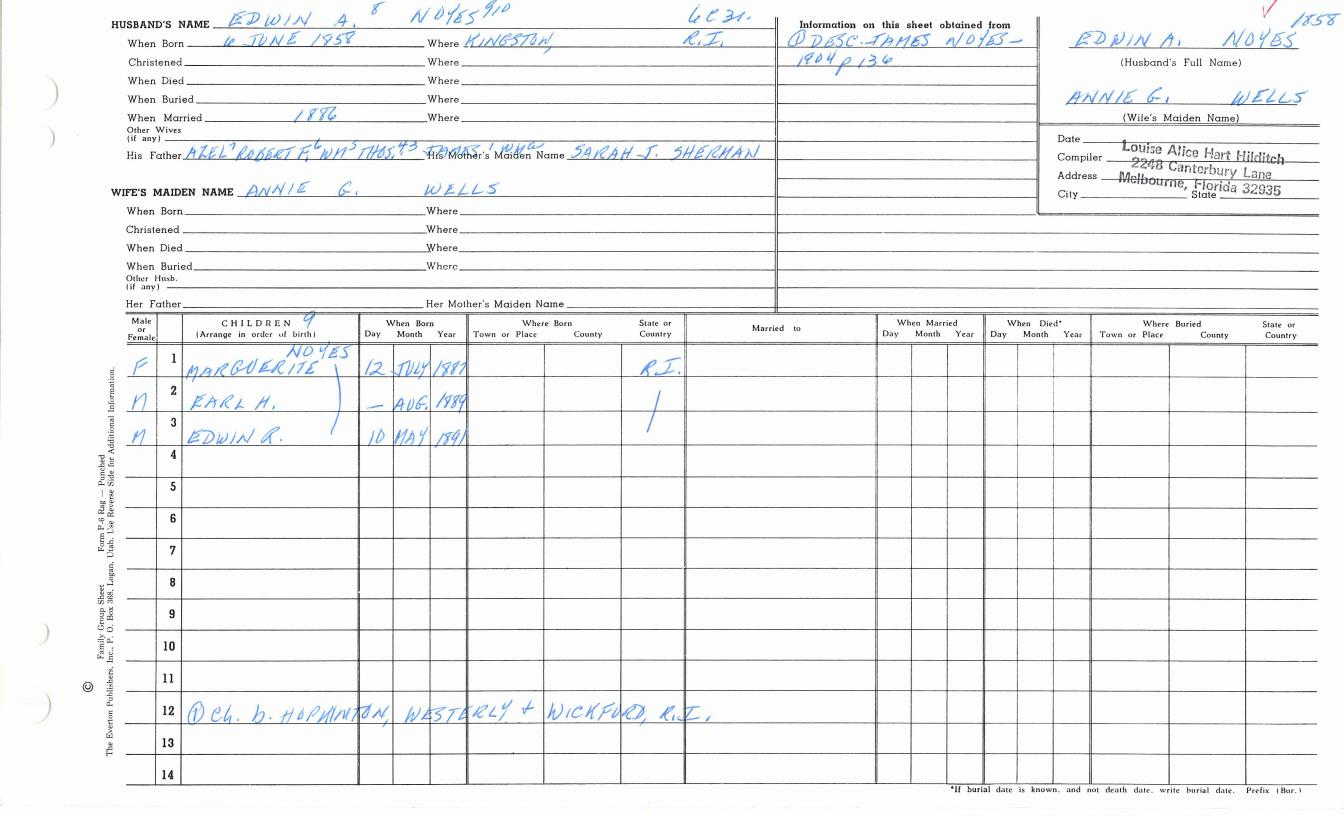 HUSBAND'S NAME EDWIN A. 8 NOYES 910 6C31.
When Born 6 JUNE 1858 Where KINGSTON, R.I.
Christened Where
When Died Where
When Buried Where
When Married 1886 Where
Other Wives
(if any)
His Father AZEL7 ROBERT F,6 WM5 THOS,43 JAMES, His Mother's Maiden Name SARAH J. SHERMAN
WIFE'S MAIDEN NAME ANNIE G. WELLS
When Born Where
Christened Where
When Died Where
When Buried Where
Other Husb.
(if any)
Her Father Her Mother's Maiden Name
Information on this sheet obtained from
① DESC. JAMES NOYES -
1904 p 136
1858
EDWIN A. NOYES
(Husband's Full Name)
ANNIE G. WELLS
(Wife's Maiden Name)
Date
Compiler Louise Alice Hart Hilditch
Address 2248 Canterbury Lane
City Melbourne, Florida 32935 State
Male or Female CHILDREN 9 (Arrange in order of birth) When Born Day Month Year Where Born Town or Place County State or Country Married to When Married Day Month Year When Died* Day Month Year Where Buried Town or Place County State or Country
NOYES
F 1 MARGUERITE 12 JULY 1887 R.I.
M 2 EARL H. — AUG. 1889
M 3 EDWIN R. 10 MAY 1891
4
5
6
7
8
9
10
11
12 ① Ch. b. HOPKINTON, WESTERLY + WICKFORD, R.I.
13
14
*If burial date is known, and not death date, write burial date. Prefix (Bur.)
Family Group Sheet Form P-6 Rag — Punched
© The Everton Publishers, Inc., P. O. Box 368, Logan, Utah. Use Reverse Side for Additional Information.